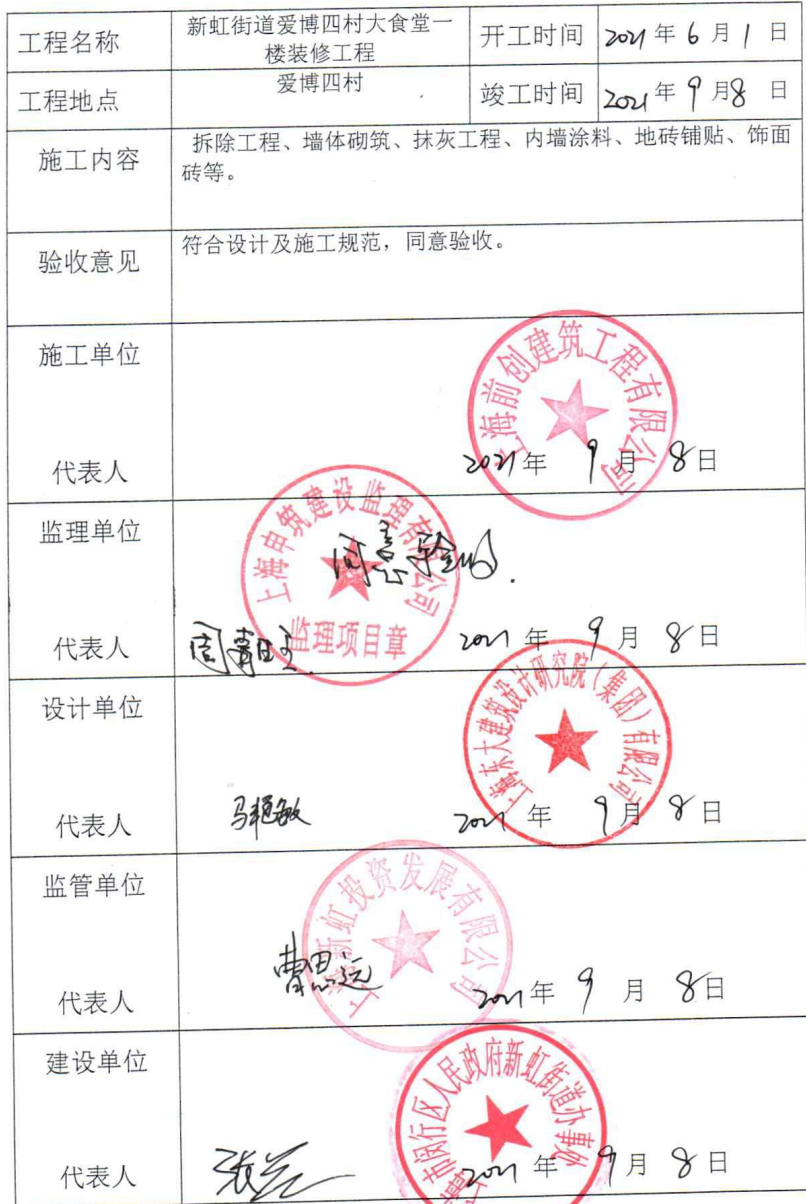 工程名称 新虹街道爱博四村大食堂一 开工时间 2021年6月1日
楼装修工程
工程地点 爱博四村 竣工时间 2021年9月8日
施工内容 拆除工程、墙体砌筑、抹灰工程、内墙涂料、地砖铺贴、饰面
砖等。
验收意见 符合设计及施工规范，同意验收。
施工单位
上海前创建筑工程有限公司
代表人 2021年9月8日
监理单位
上海申筑建设监理有限公司
同意验收.
监理项目章
代表人 2021年9月8日
设计单位
上海东大建筑设计研究院（集团）有限公司
代表人 马艳敏 2021年9月8日
监管单位
上海新虹投资发展有限公司
曹思远
代表人 2021年9月8日
建设单位
市闵行区人民政府新虹街道办事处
代表人 2021年9月8日